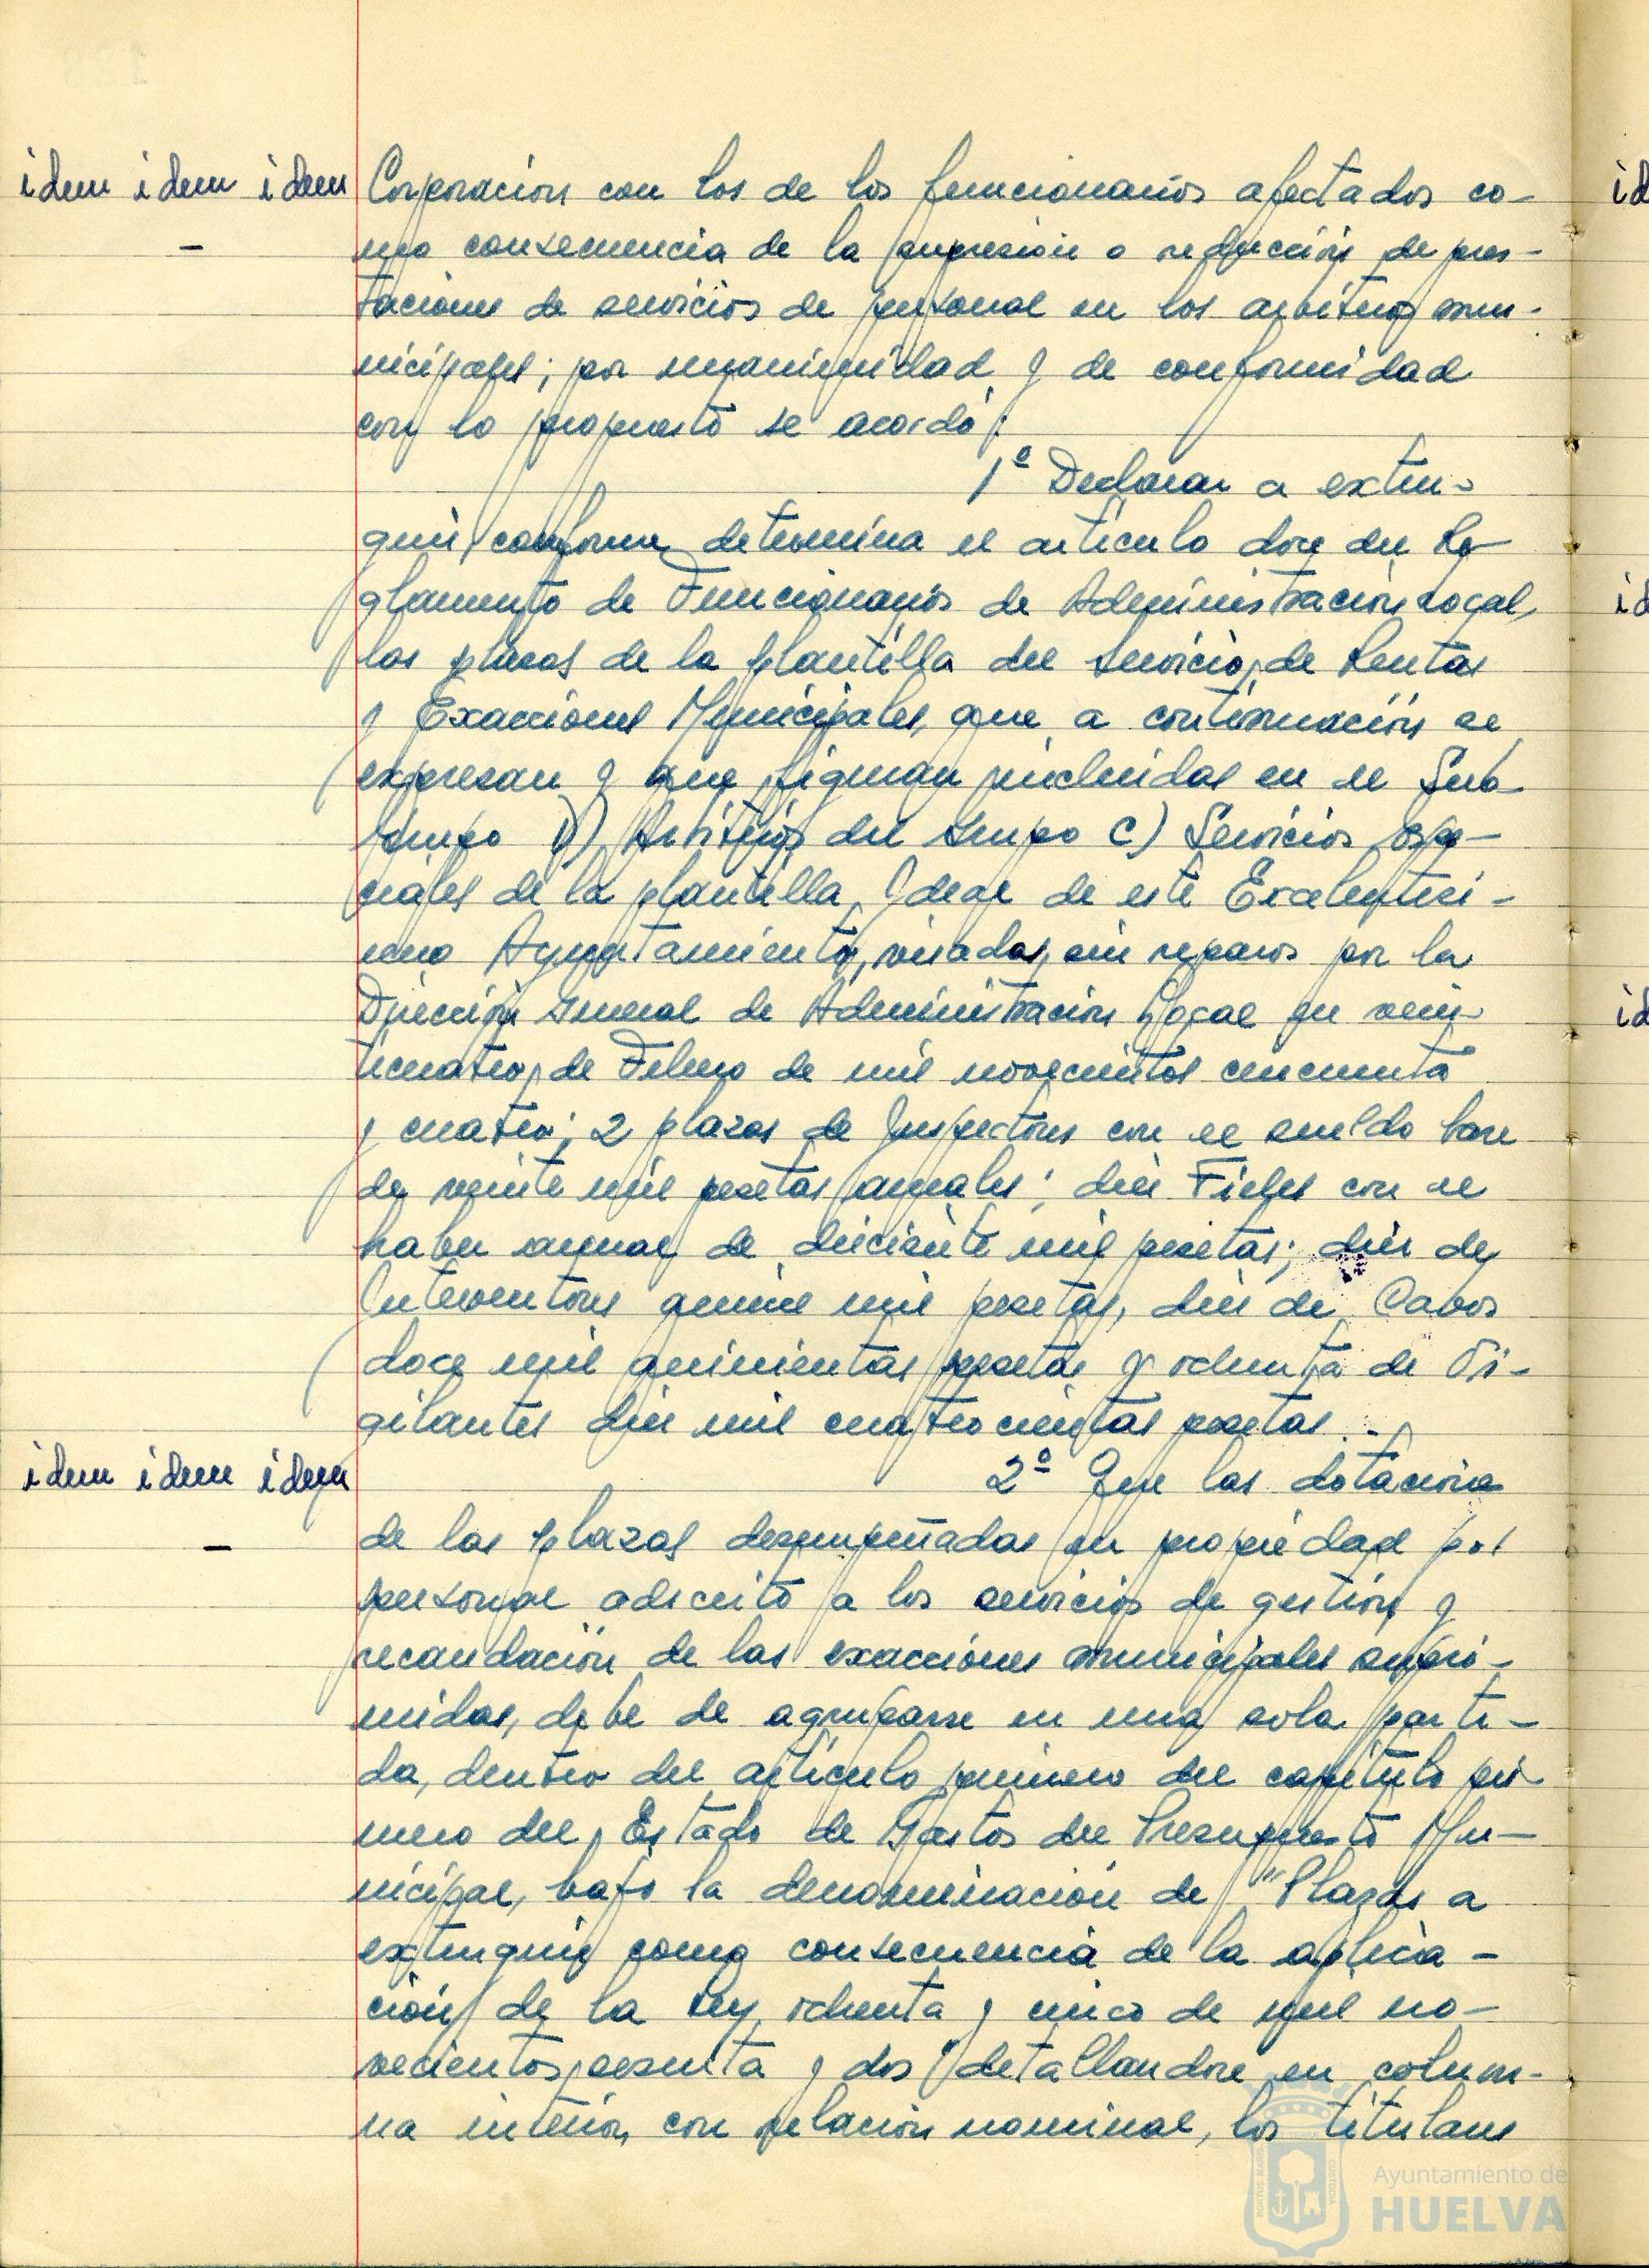 idem idem idem Corporación con los de los funcionarios afectados co-
- mo consecuencia de la supresión o reducción de pres-
taciones de servicios de personal en los arbitrios mu-
nicipales; por unanimidad y de conformidad
con lo propuesto se acordó:
1º Declarar a extin-
guir conforme determina el artículo doce del Re-
glamento de Funcionarios de Administración Local,
las plazas de la plantilla del Servicio de Rentas
y Exacciones Municipales, que a continuación se
expresan y que figuran incluidas en el Sub-
grupo D) Arbitrios del Grupo C) Servicios espe-
ciales de la plantilla ideal de este Excelentísi-
mo Ayuntamiento, visadas sin reparos por la
Dirección General de Administración Local en vein-
ticuatro de Febrero de mil novecientos cincuenta
y cuatro; 2 plazas de Inspectores con el sueldo base
de veinte mil pesetas anuales; diez Fieles con el
haber anual de diecisiete mil pesetas; diez de
Interventores quince mil pesetas, diez de Cabos
doce mil quinientas pesetas y ochenta de Vi-
gilantes diez mil cuatrocientas pesetas.-
idem idem idem 2º Que las dotaciones
- de las plazas desempeñadas en propiedad por
personal adscrito a los servicios de gestión y
recaudación de las exacciones municipales supri-
midas, debe de agruparse en una sola parti-
da, dentro del artículo primero del capítulo pri-
mero del Estado de Gastos del Presupuesto Mu-
nicipal, bajo la denominación de "Plazas a
extinguir como consecuencia de la aplica-
ción de la Ley ochenta y cinco de mil no-
vecientos sesenta y dos" detallandose en colum-
na interior, con relación nominal, los titulares
id
id
id
Ayuntamiento de
HUELVA